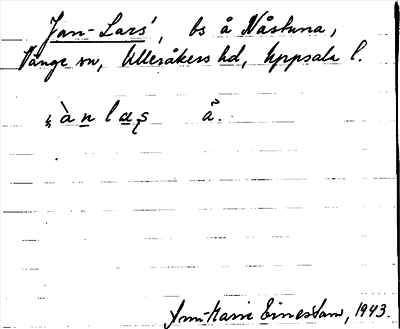 Jan-Lars', bs å Nåstuna,
Vänge sn, Ulleråkers hd, Uppsala l.
å.
Ann-Marie Einestam, 1943.